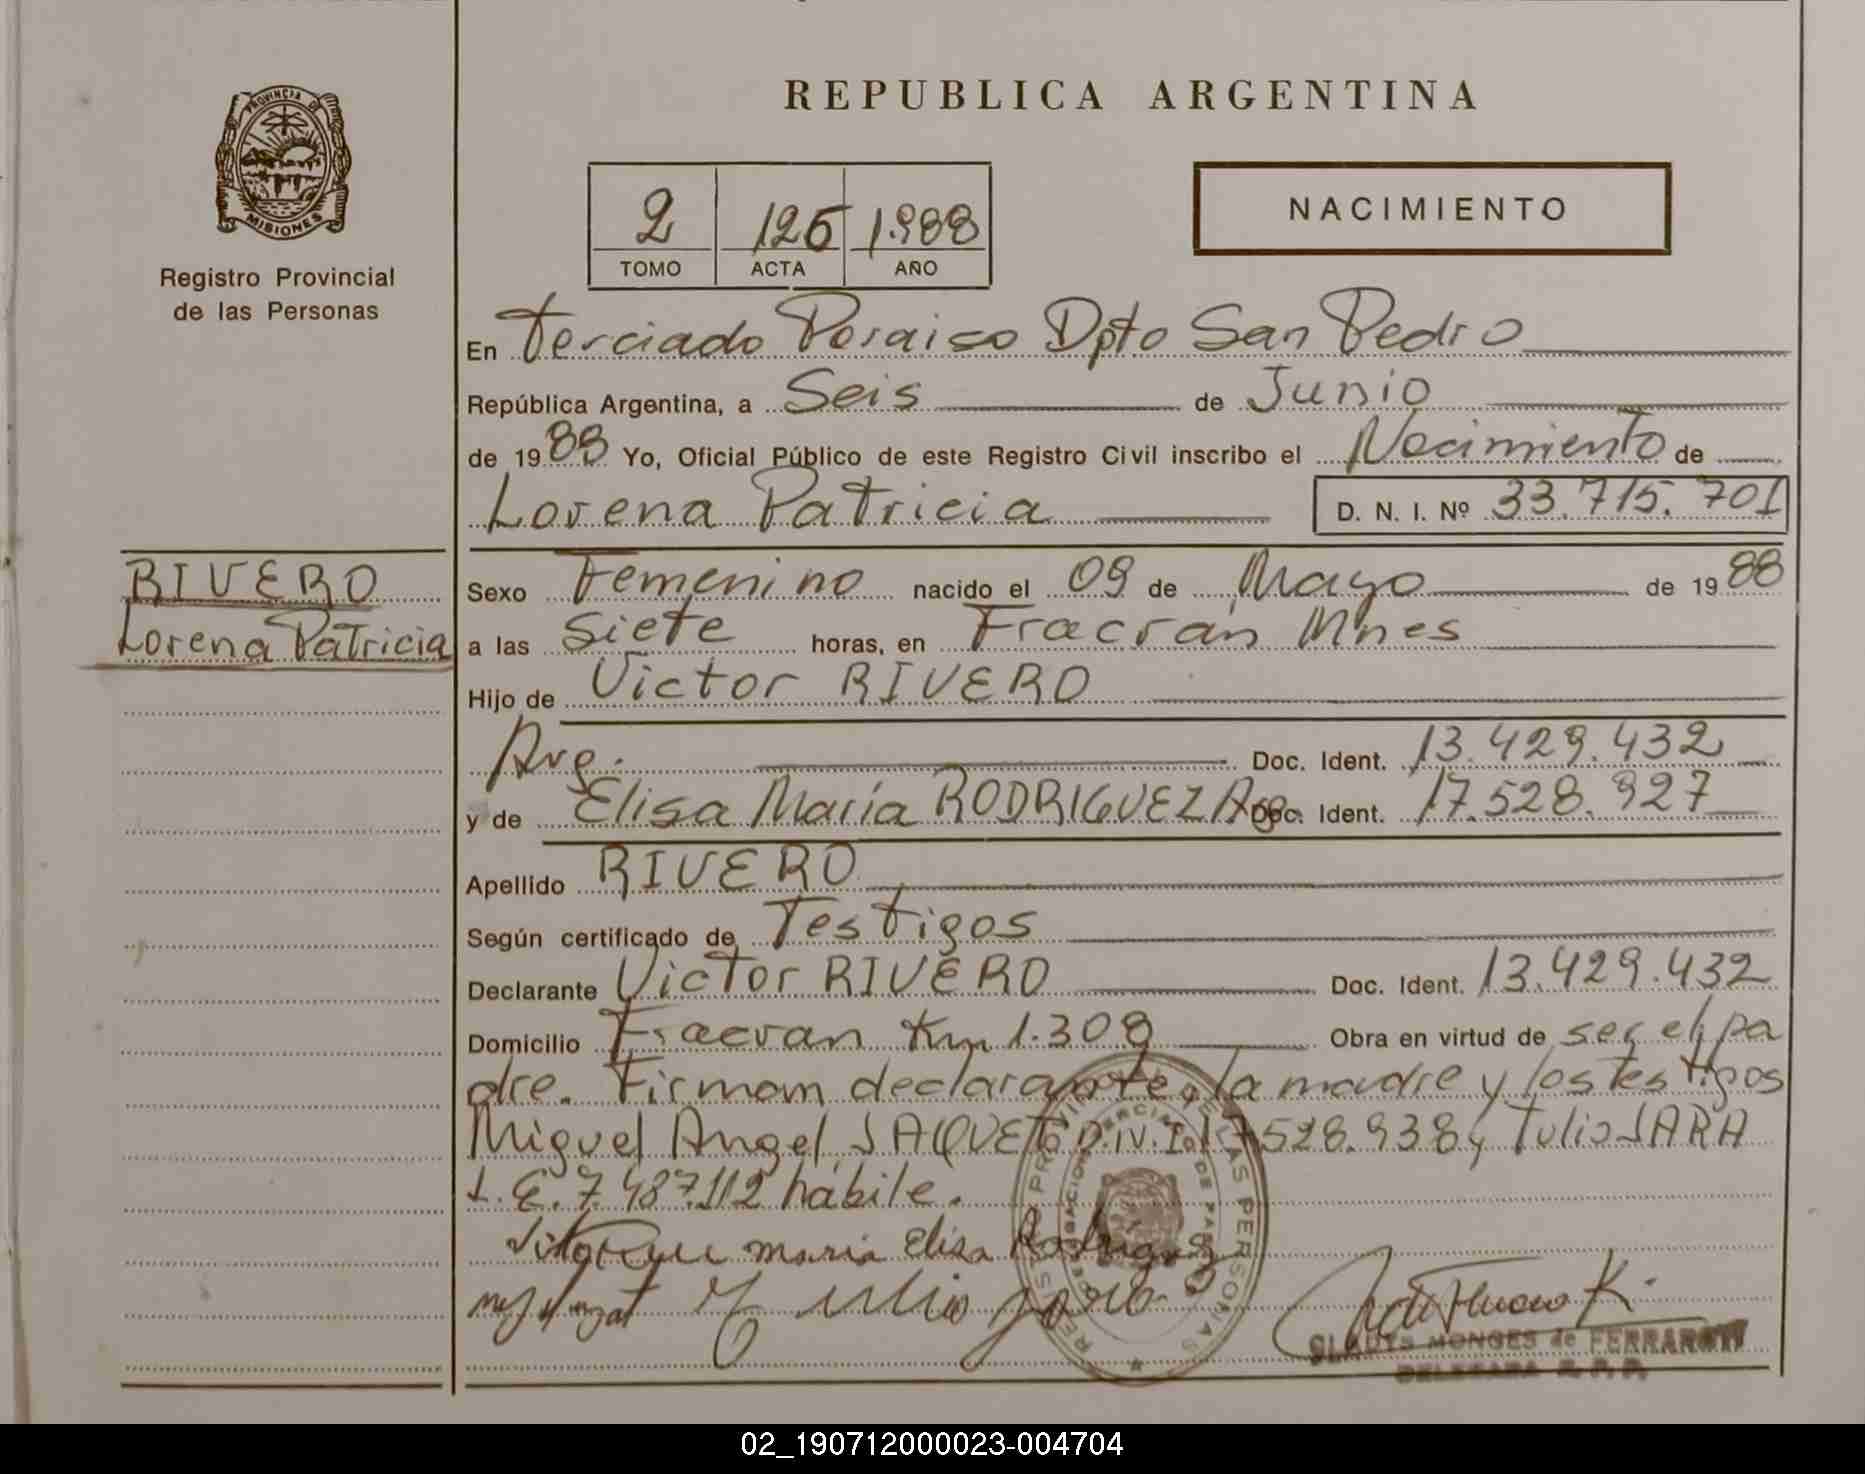 PROVINCIA DE
MISIONES
Registro Provincial
de las Personas
RIVERO
Lorena Patricia
REPUBLICA ARGENTINA
2 126 1.988
TOMO ACTA AÑO
NACIMIENTO
En Terciado Paraiso Dpto San Pedro
República Argentina, a Seis de Junio
de 1988 Yo, Oficial Público de este Registro Civil inscribo el Nacimiento de
Lorena Patricia D. N. I. Nº 33.715.701
Sexo Femenino nacido el 09 de Mayo de 1988
a las Siete horas, en Fracran Mnes
Hijo de Victor RIVERO
Arg. Doc. Ident. 13.429.432
y de Elisa María RODRIGUEZ Arg. Doc. Ident. 17.528.927
Apellido RIVERO
Según certificado de Testigos
Declarante Victor RIVERO Doc. Ident. 13.429.432
Domicilio Fracran Km 1.308 Obra en virtud de ser el pa
dre. Firman declarante, la madre y los testigos
Miguel Angel JAQUET D.N.I. 17528.938 y Tulio JARA
L.E. 7.487.112 hábile.
maria Elisa Rodriguez
GLADYS MONGES de FERRAROTTI
DELEGADA R. P. P.
02_190712000023-004704